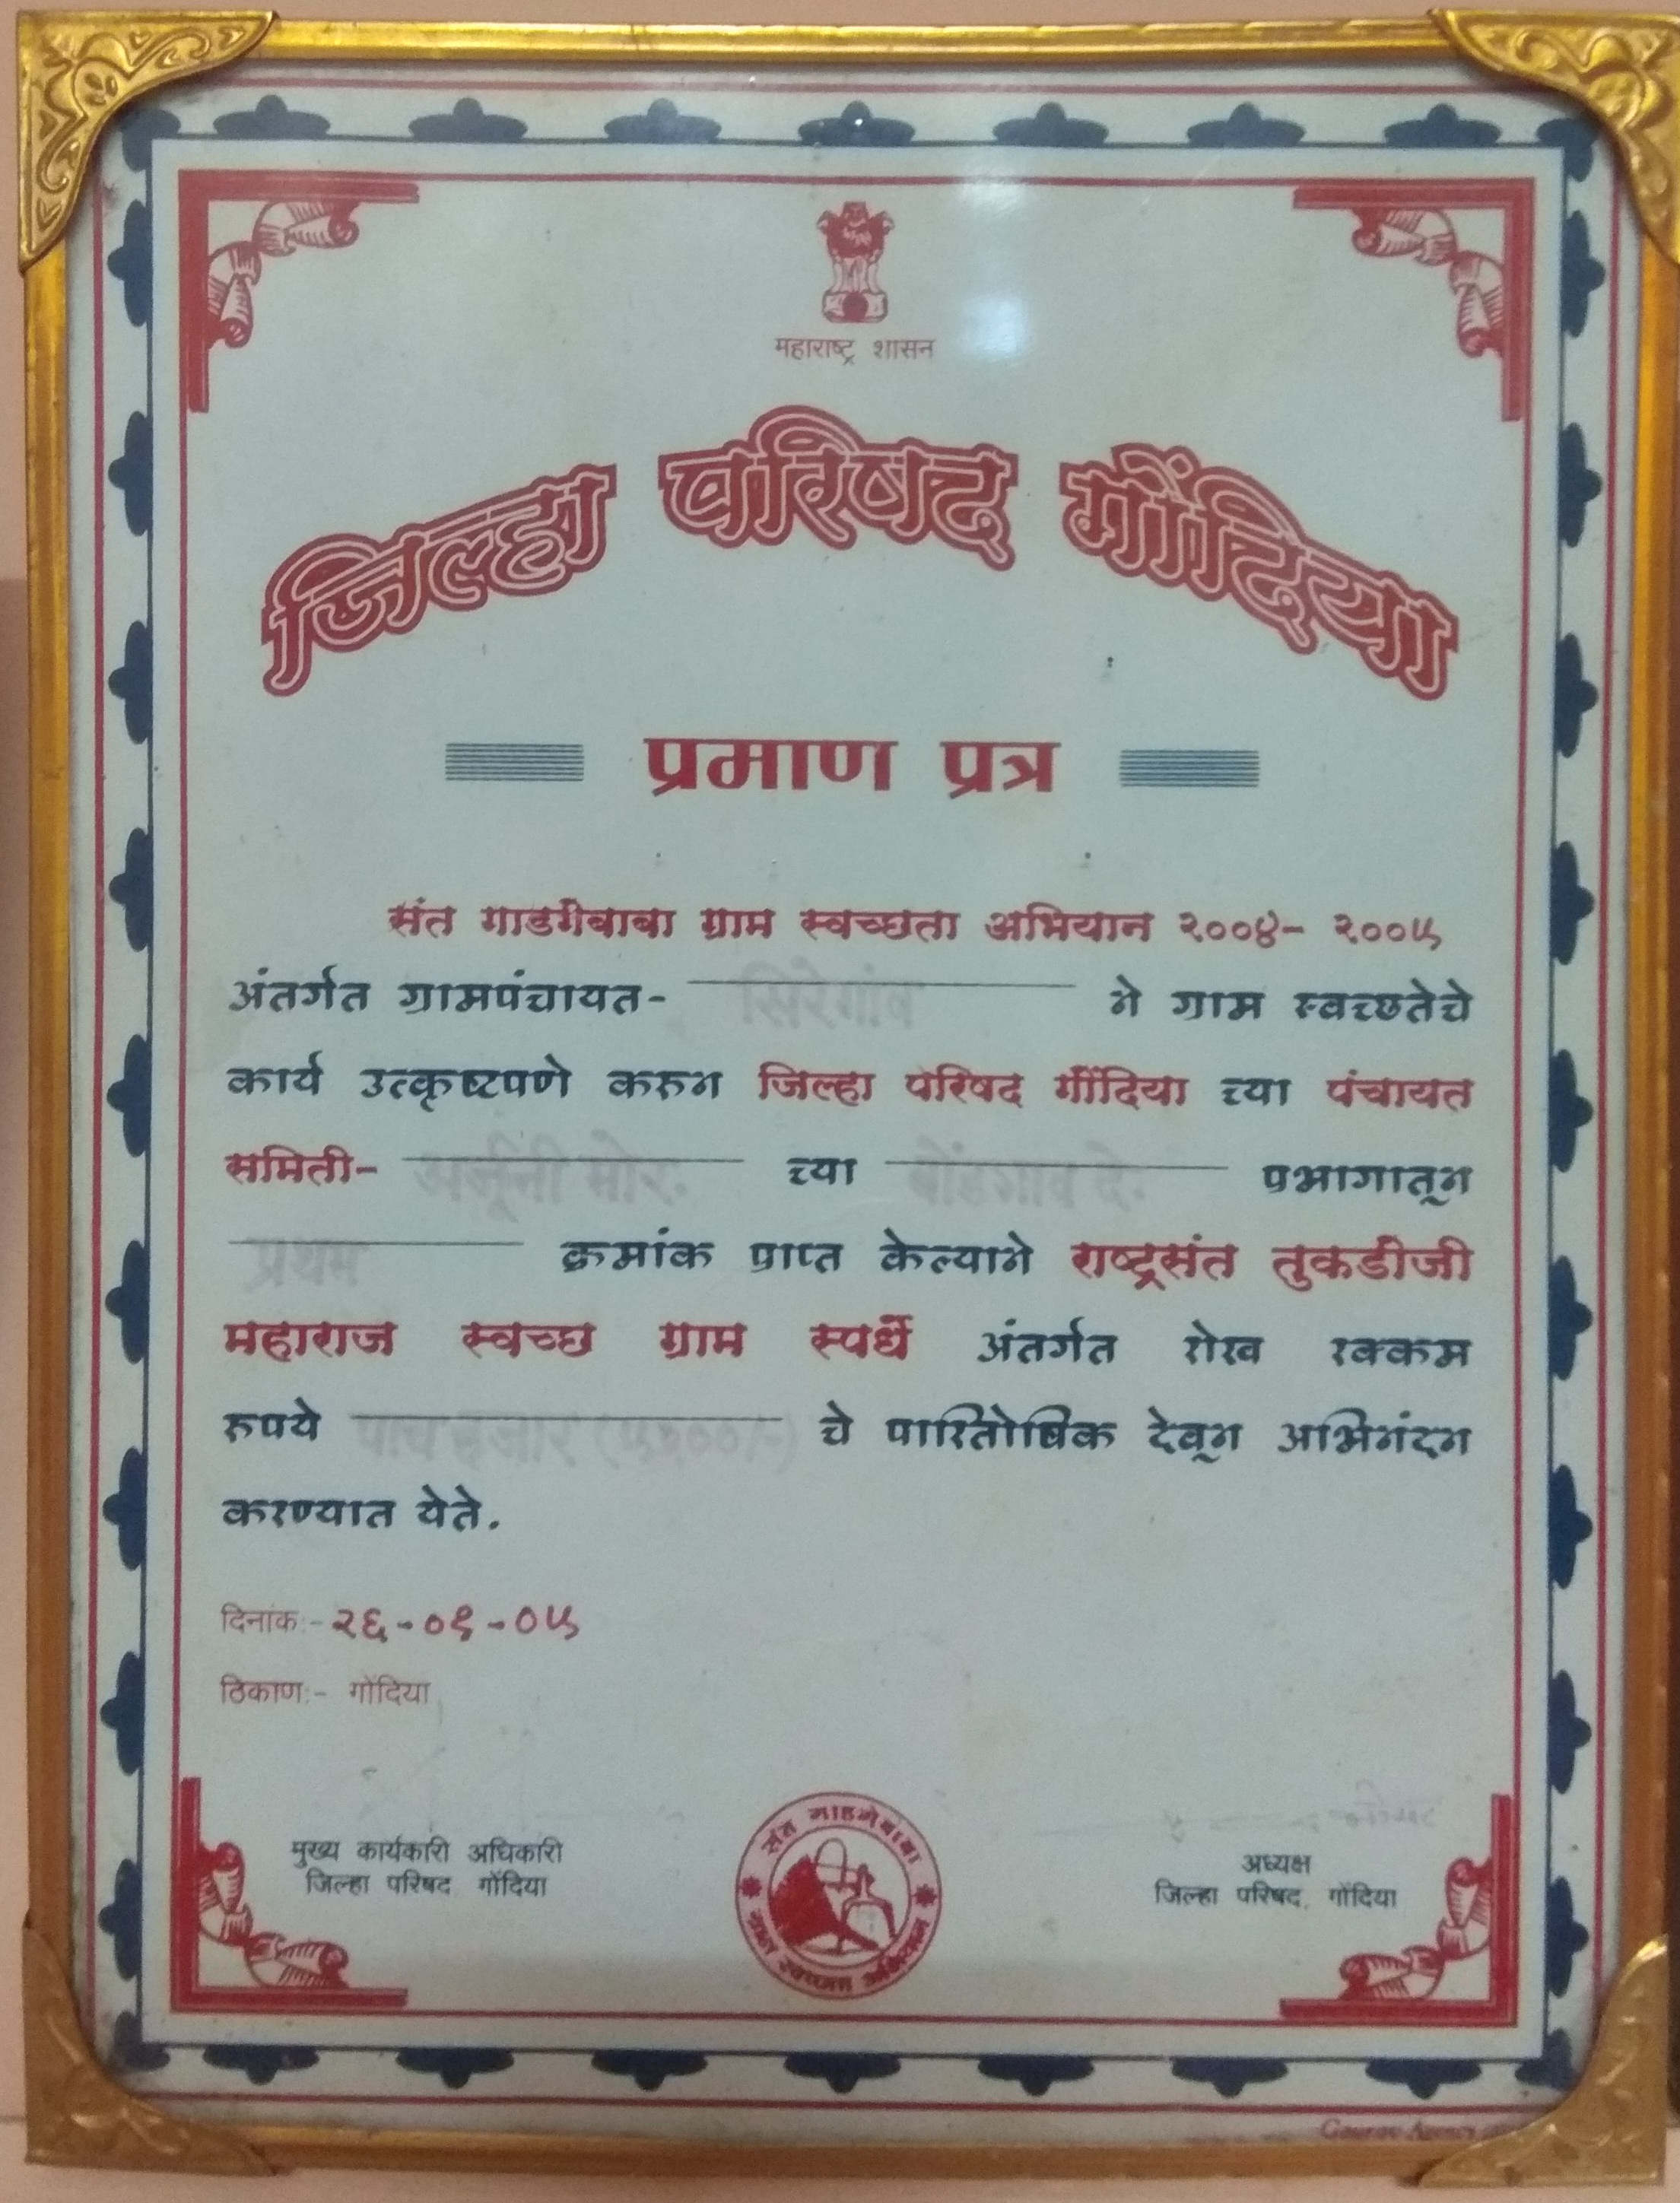 महाराष्ट्र शासन
जिल्हा परिषद गोंदिया
प्रमाण पत्र
संत गाडगेबाबा ग्राम स्वच्छता अभियान २००४- २००५
अंतर्गत ग्रामपंचायत- सिरेगांव ने ग्राम स्वच्छतेचे
कार्य उत्कृष्टपणे करून जिल्हा परिषद गोंदिया च्या पंचायत
समिती- अर्जूनी मोर. च्या बोंडगाव दे. प्रभागातून
प्रथम क्रमांक प्राप्त केल्याने राष्ट्रसंत तुकडोजी
महाराज स्वच्छ ग्राम स्पर्धे अंतर्गत रोख रक्कम
रुपये पाच हजार चे पारितोषिक देवून अभिनंदन
करण्यात येते.
दिनांक:- २६-०१-०५
ठिकाण:- गोंदिया
मुख्य कार्यकारी अधिकारी
जिल्हा परिषद गोंदिया
संत गाडगेबाबा
ग्राम स्वच्छता अभियान
अध्यक्ष
जिल्हा परिषद, गोंदिया